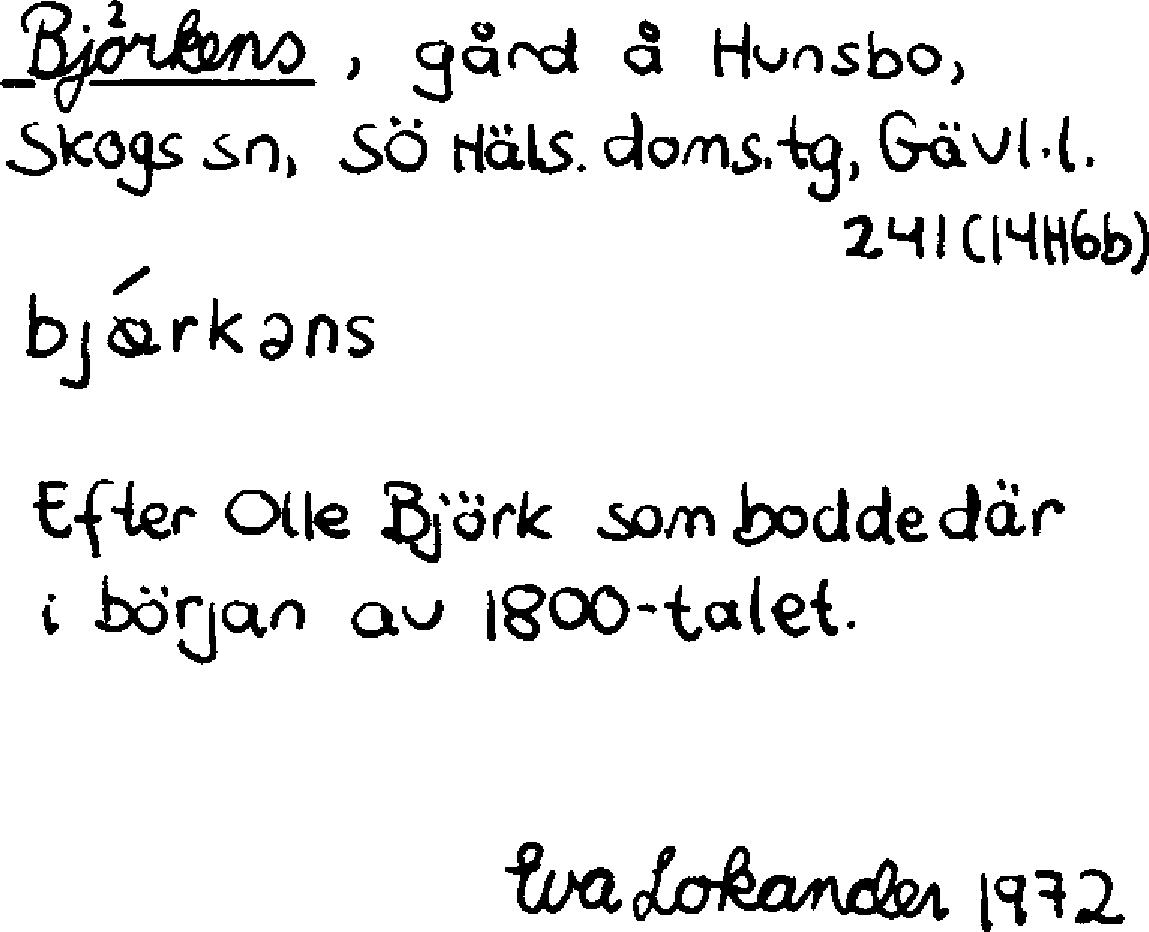 Björkens, gård å Hunsbo,
Skogs sn, SÖ Häls. doms.tg, Gävl.l.
241 (14H6b)
bjǿrkəns
Efter Olle Björk som bodde där
i början av 1800-talet.
Eva Lokander 1972